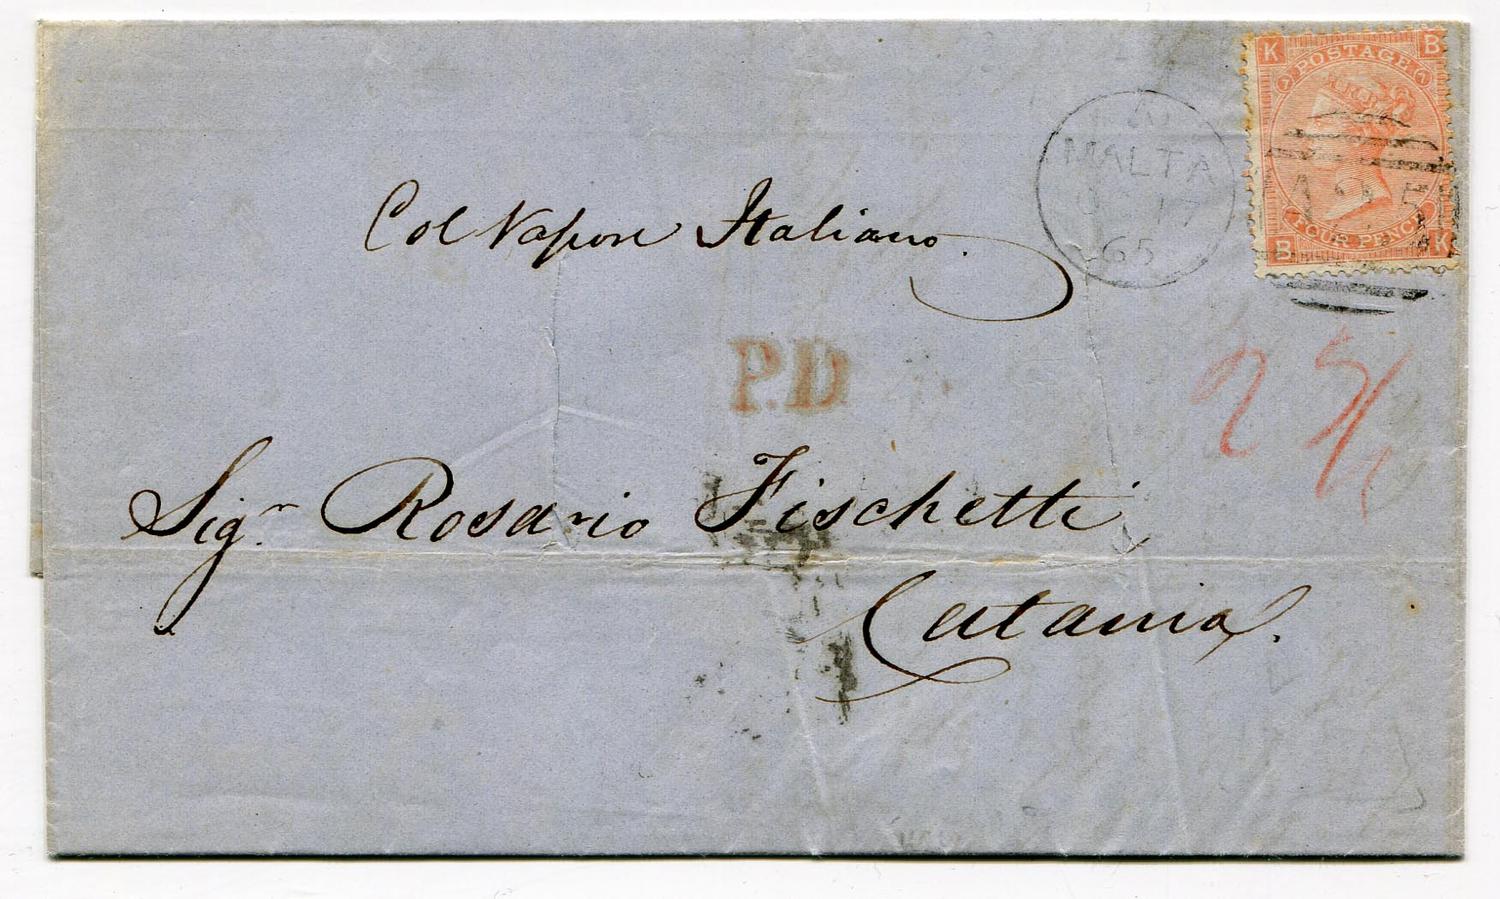 K B
POSTAGE
7 7
FOUR PENCE
B K
A
MALTA
17
65
A25
Col Vapore Italiano.
P.D
2 5/
Sigr. Rosario Fischetti
Catania.